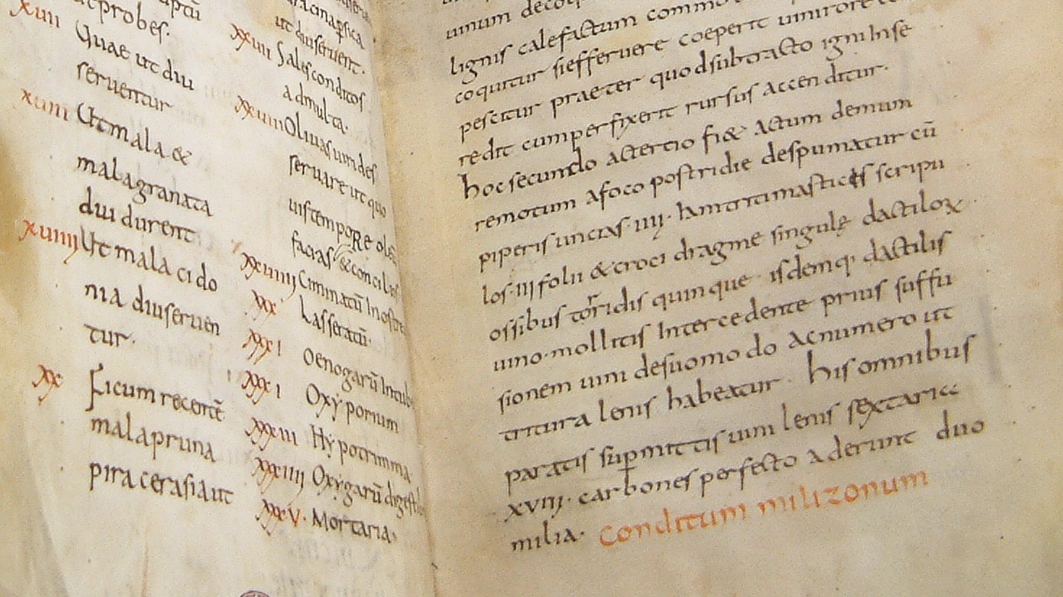 probes.
XVII Quae ut diu
serventur
XVIII Ut mala &
mala granata
diu durent
XVIIII Ut mala cido
nia diu serven
tur.
XX Ficum recentē
mala pruna
pira cerasia ut
ut diu servent.
XXVII Sales conditos
ad multa.
XXVIII Olivas virides
servare ut quo
vis tempore oleū
facias
XXVIIII Cuminatū in ostrea
XXX Lasseratū.
XXXI Oenogarū in tub
XXXI Oxyporum
XXXIII Hypotrimma
XXXIIII Oxygarū digestib
XXXV. Mortaria.
vinum
lignis calefactum commo
coquitur si effervere coeperit vini rore
pescitur praeter quod subtracto igni in se
redit cum perfixerit rursus accenditur.
hoc secundo ac tertio fi& actum demum
remotum a foco postridie despumatur cū
piperis uncias IIII. iam triti masticis scripu
los. III folii & croci dragme singulę dactilox
ossibus torridis quinque isdemq; dactilis
vino mollitis intercedente prius suffu
sionem vini de suo modo ac numero ut
tritura lenis habeatur. his omnibus
paratis supmittis vini lenis sextaria
XVIII. carbones perfecto aderunt duo
milia. Conditum milizonum